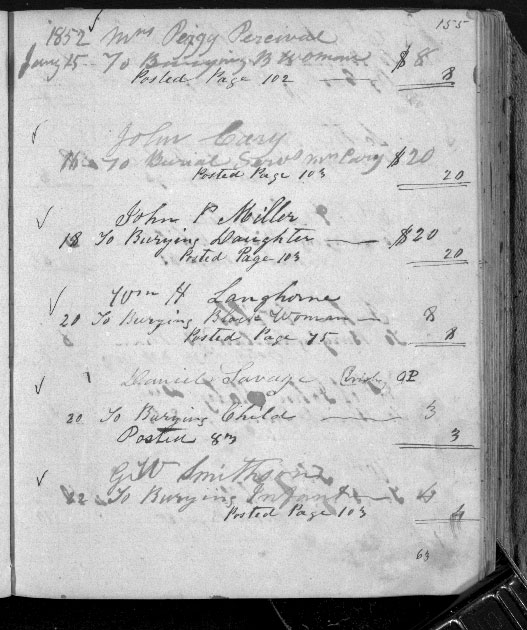 155
1852 Mrs Peigy Percival
Jany 15 - To Burying B Woman $8
Posted Page 102 — 8
John Cary
16 To Burial Servs Mrs Cary $20
Posted Page 103 20
John P Miller
18 To Burying Daughter — $20
Posted Page 103 20
Wm H Langhorne
20 To Burying Black Woman — 8
Posted Page 75 8
Daniel Savage
20 To Burying Child — 3
Posted 87 3
GW Smithson
22 To Burying Infant — 4
Posted Page 103 4
63